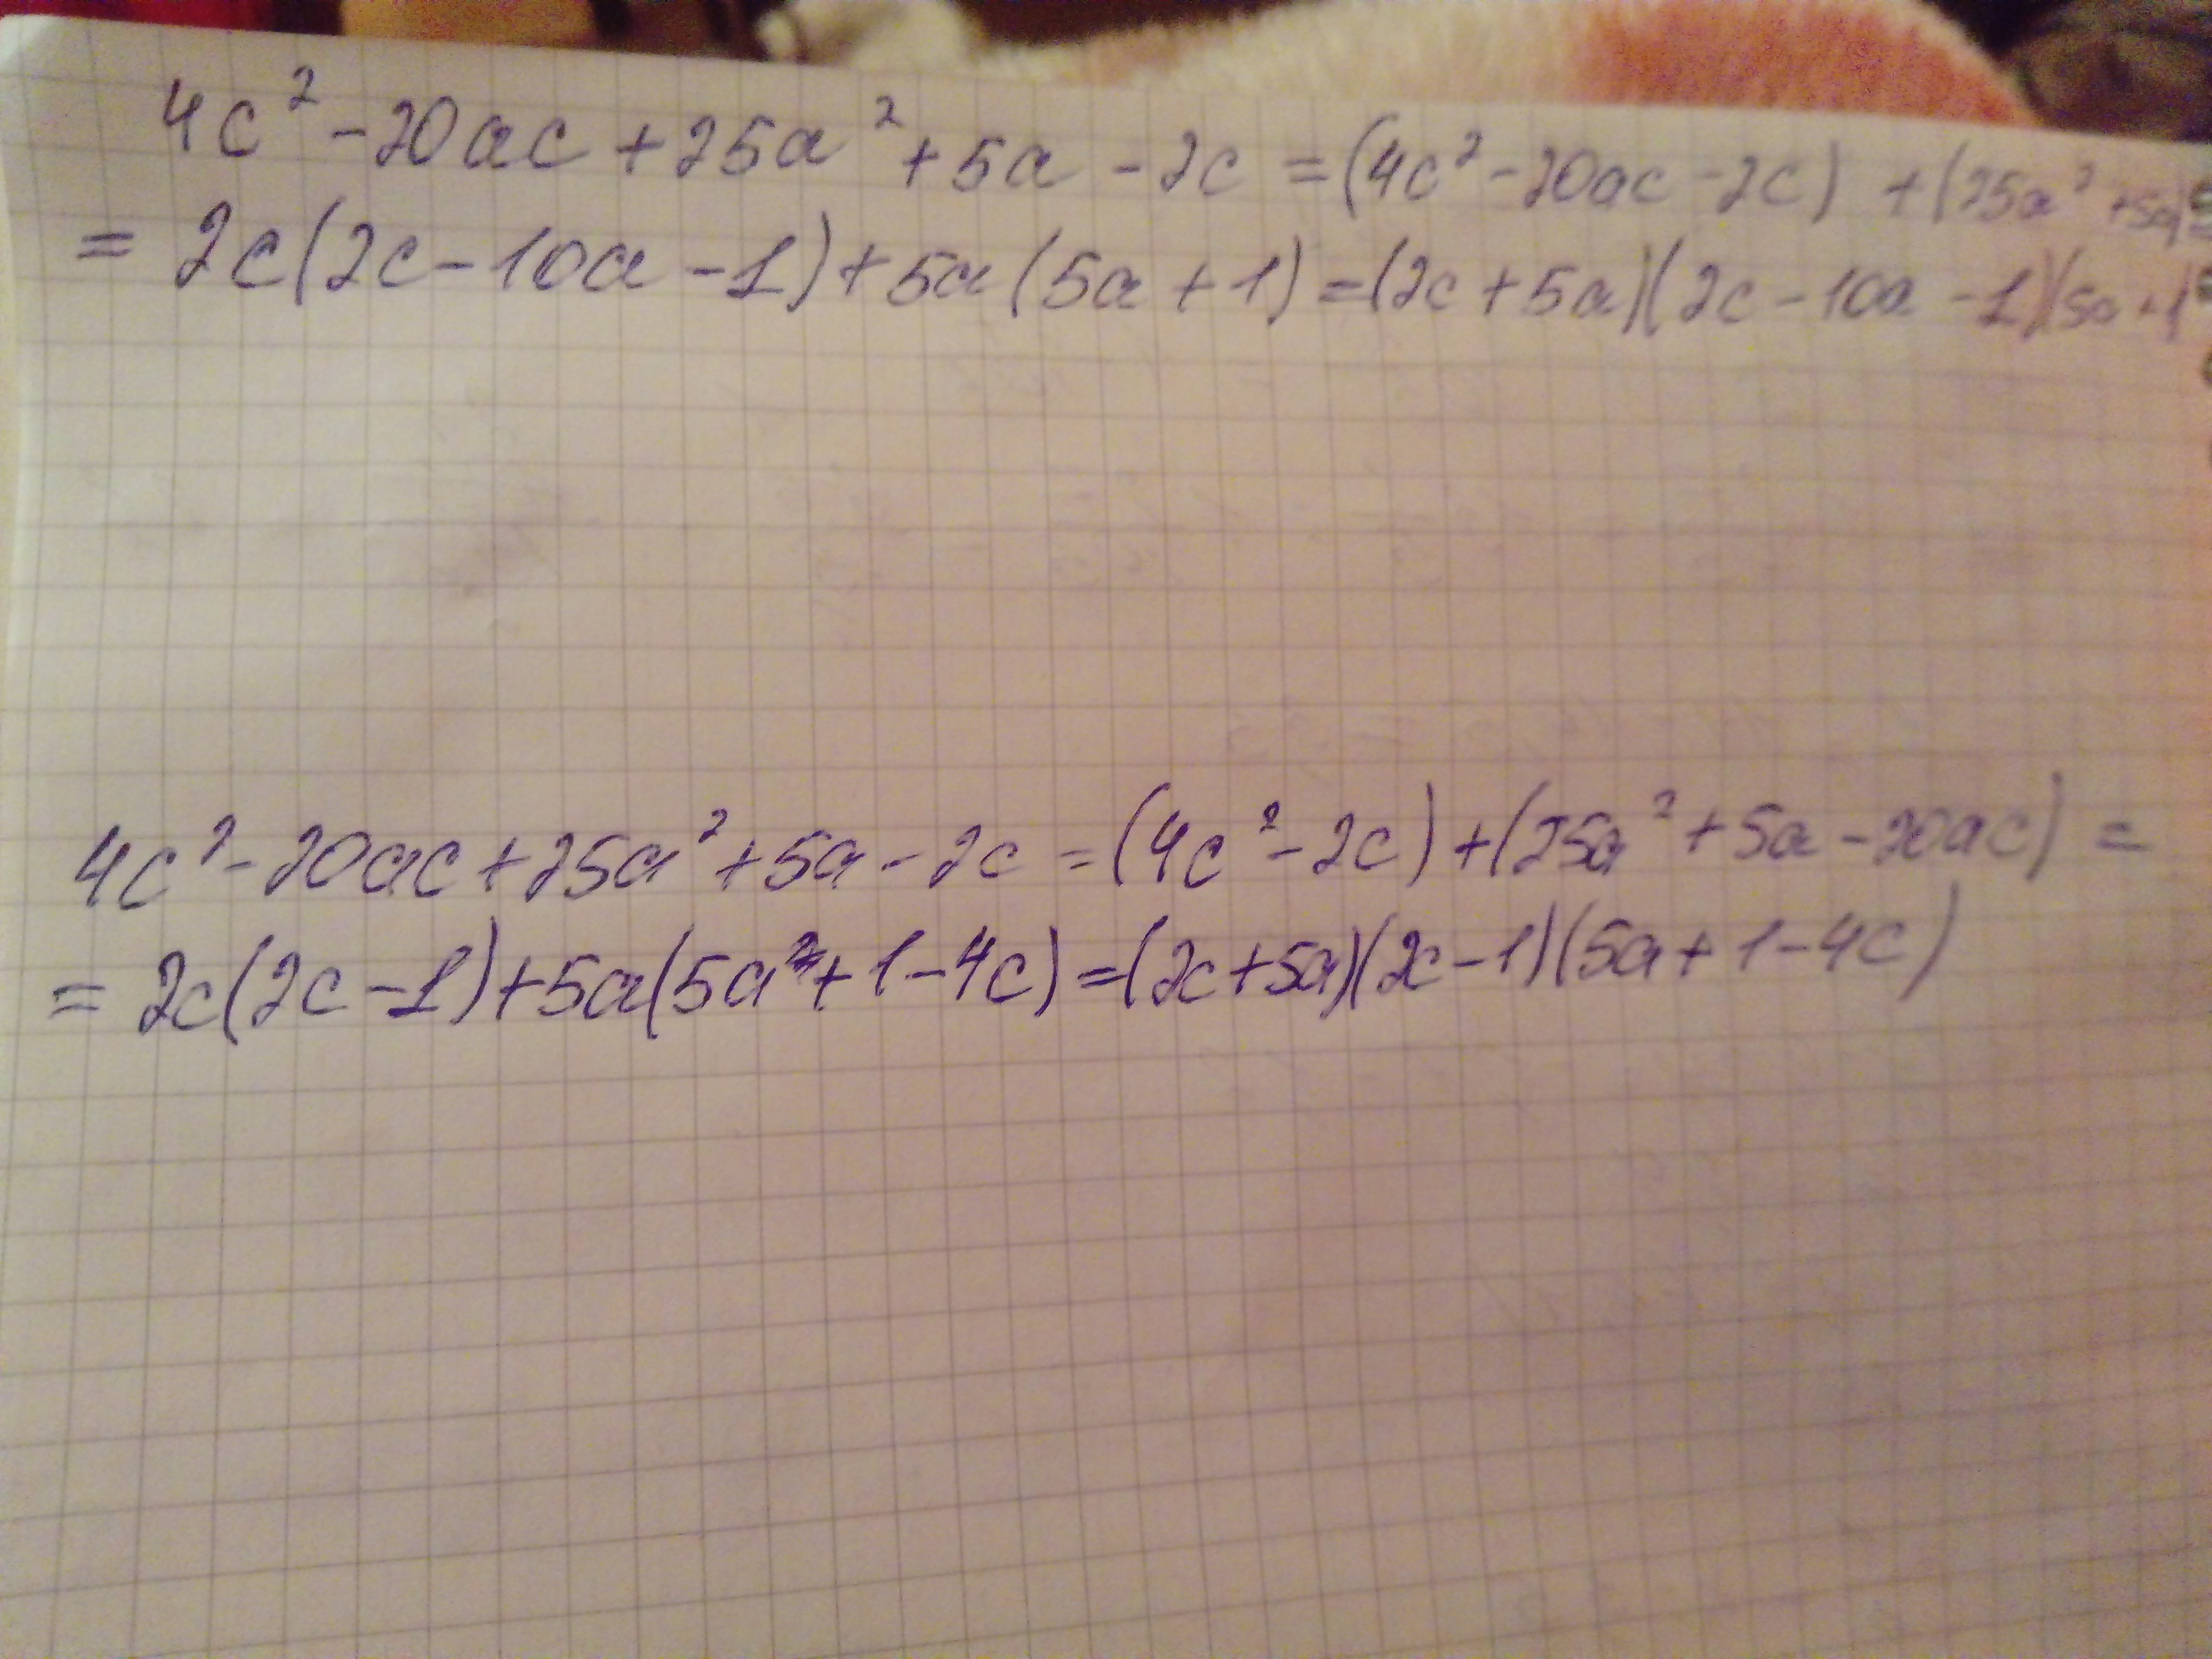 4c² - 20ac + 25a² + 5a - 2c = (4c² - 20ac - 2c) + (25a² + 5a) =
= 2c(2c - 10a - 1) + 5a(5a + 1) = (2c + 5a)(2c - 10a - 1)(5a + 1
4c² - 20ac + 25a² + 5a - 2c = (4c² - 2c) + (25a² + 5a - 20ac) =
= 2c(2c - 1) + 5a(5a + 1 - 4c) = (2c + 5a)(2c - 1)(5a + 1 - 4c)